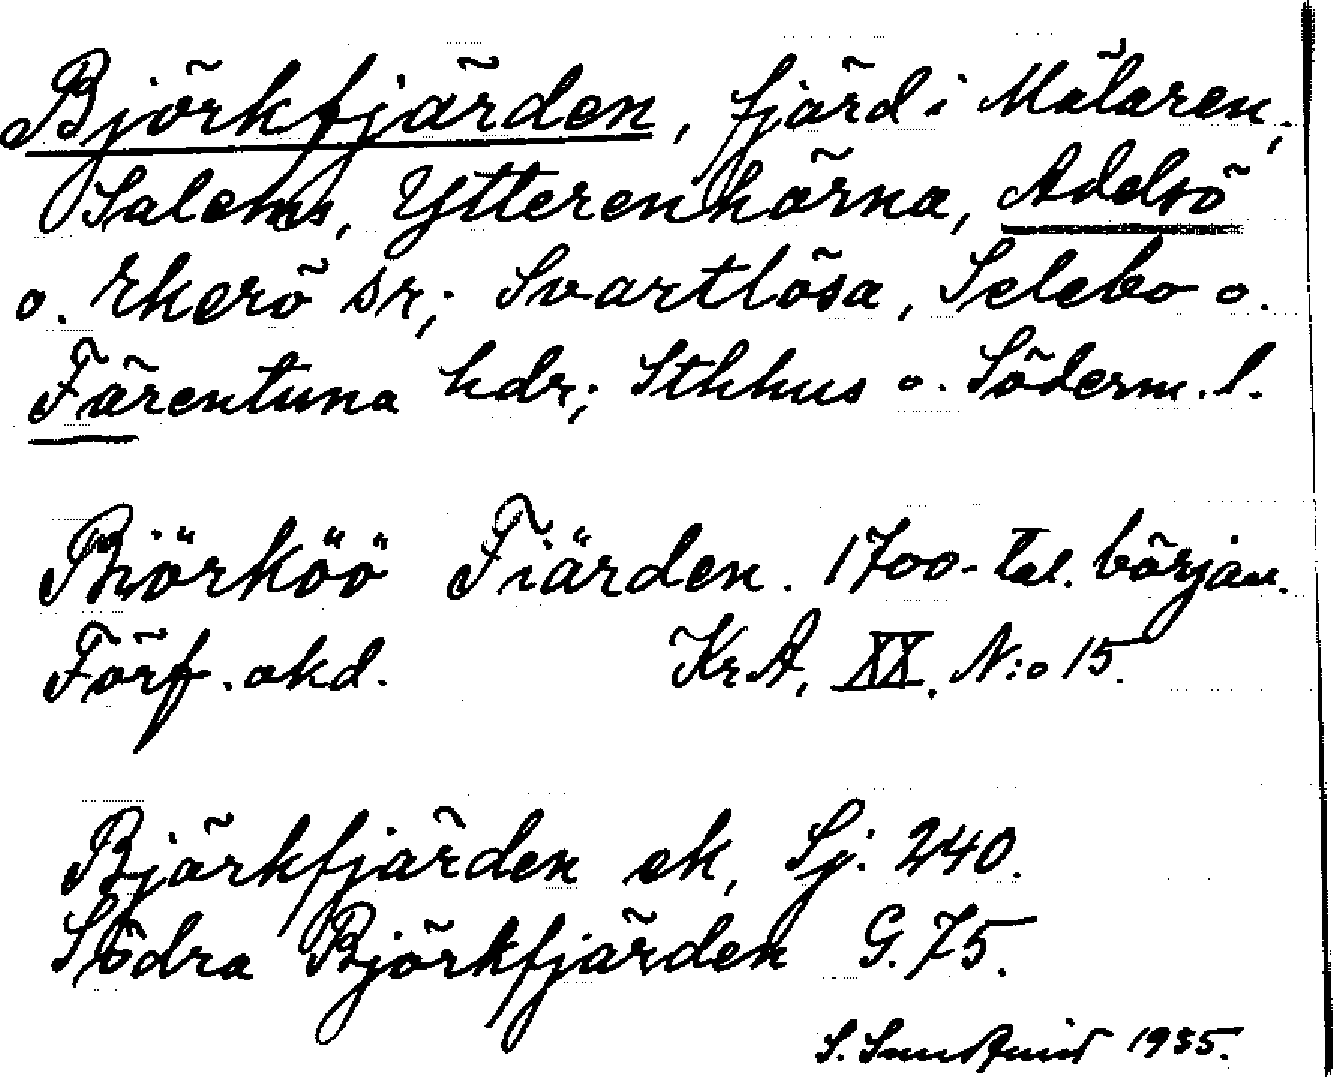 Björkfjärden, fjärd i Mälaren;
Salems, Ytterenhörna, Adelsö
o. Ekerö sr; Svartlösa, Selebo o.
Färentuna hdr; Sthlms o. Söderm. l.
Biörköö Fiärden. 1700-tal. början.
Förf. okd. Kr.A. XX. N:o 15.
Björkfjärden ek, Sj. 240.
Södra Björkfjärden G. 75.
S. Sundquist 1935.